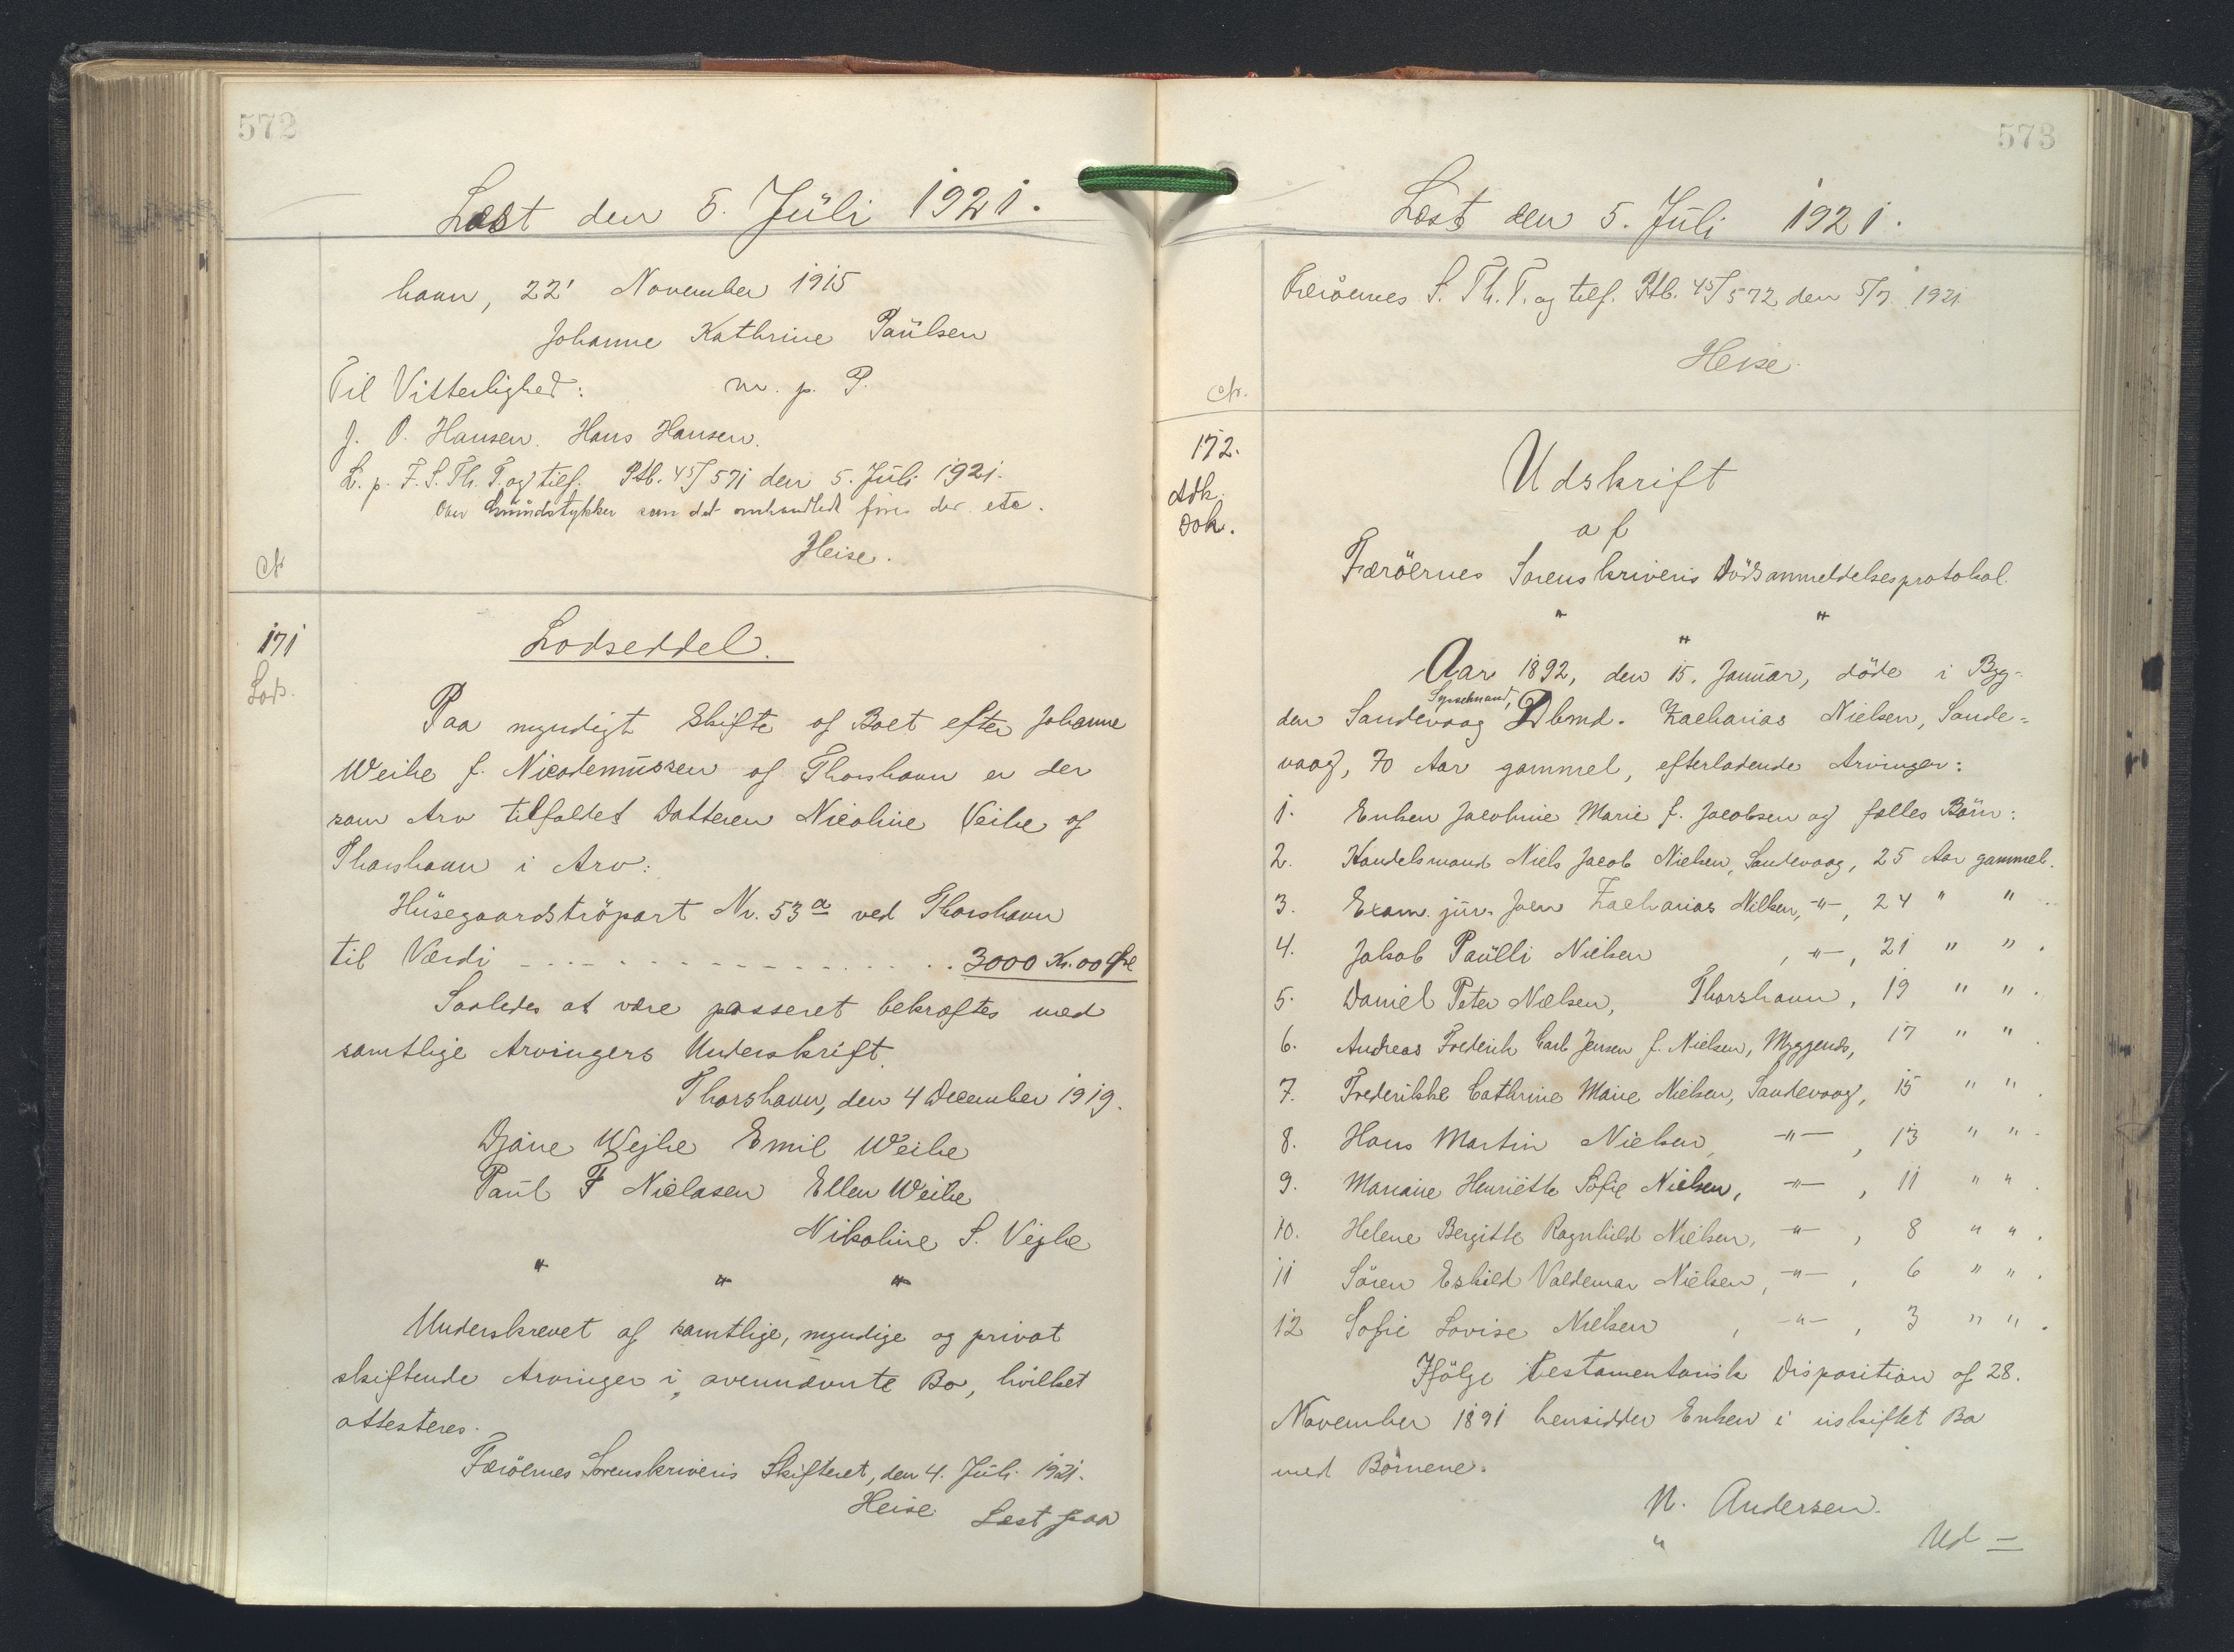 572
Læst den 5. Jüli 1921.
havn, 22' November 1915
Johanne Kathrine Paülsen
Til Vitterlighed: m. p. P.
J. O. Hansen. Hans Hansen.
L. p. F. S. Th. T. og tilf. Ptb. 45/571 den 5. Jüli 1921.
Over Gründstykker som det omhandlede fin. der. etc.
Heise.
171
Lodseddel.
Paa myndigt Skifte af Boet efter Johanne
Weihe f. Nicodemüssen af Thorshavn er der
som Arv tilfaldet Datteren Nicoline Veihe af
Thorshavn i Arv:
Hüsegaardströpart Nr. 53a ved Thorshavn
til Værdi - - - - - - - - - 3000 Kr. 00 Øre
Saaledes at være passeret bekræftes med
samtlige Arvingers Underskrift.
Thorshavn, den 4 December 1919.
Djóne Wejhe Emil Weihe
Paül F Niclasen Ellen Weihe
Nikoline S. Vejhe
" " "
Underskrevet af samtlige, myndige og privat
skiftende Arvinger i ovennævnte Bo, hvilket
attesteres.
Færöernes Sorenskriveris Skifteret, den 4. Jüli 1921.
Heise. Læst paa
573
Læst den 5. Jüli 1921.
Færöernes S. Th. T. og tilf. Ptb. 45/572 den 5/7 1921
Heise.
172.
Adk.
Dok.
Udskrift
af
Færöernes Sorenskriveris Dödsanmeldelsesprotokol.
" " "
Aar 1892, den 15. Janüar, döde i Byg-
den Sandevaag Sysselmand, Dbmd. Zacharias Nielsen, Sande=
vaag, 70 Aar gammel, efterladende Arvinger:
1. Enken Jacobine Marie f. Jacobsen og fælles Börn:
2. Handelsmand Niels Jacob Nielsen, Sandevaag, 25 Aar gammel.
3. Exam. jür. Joen Zacharias Nielsen, -"-, 24 " "
4. Jakob Paülli Nielsen, -"-, 21 " " .
5. Daniel Peter Nielsen, Thorshavn, 19 " " .
6. Andreas Frederik Carl Jensen f. Nielsen, Myggenæs, 17 " " .
7. Frederikke Cathrine Marie Nielsen, Sandevaag, 15 " " .
8. Hans Martin Nielsen, -"-, 13 " " .
9. Mariane Henriette Sofie Nielsen, -"-, 11 " " .
10. Helene Bergitte Ragnhild Nielsen, -"-, 8 " " .
11 Sören Eskild Valdemar Nielsen, -"-, 6 " " .
12 Sofie Lovise Nielsen, -"-, 3 " " .
Ifölge testamentarisk Disposition af 28.
November 1891 hensidder Enken i üskiftet Bo
med Börnene.
N. Andersen.
" Ud=